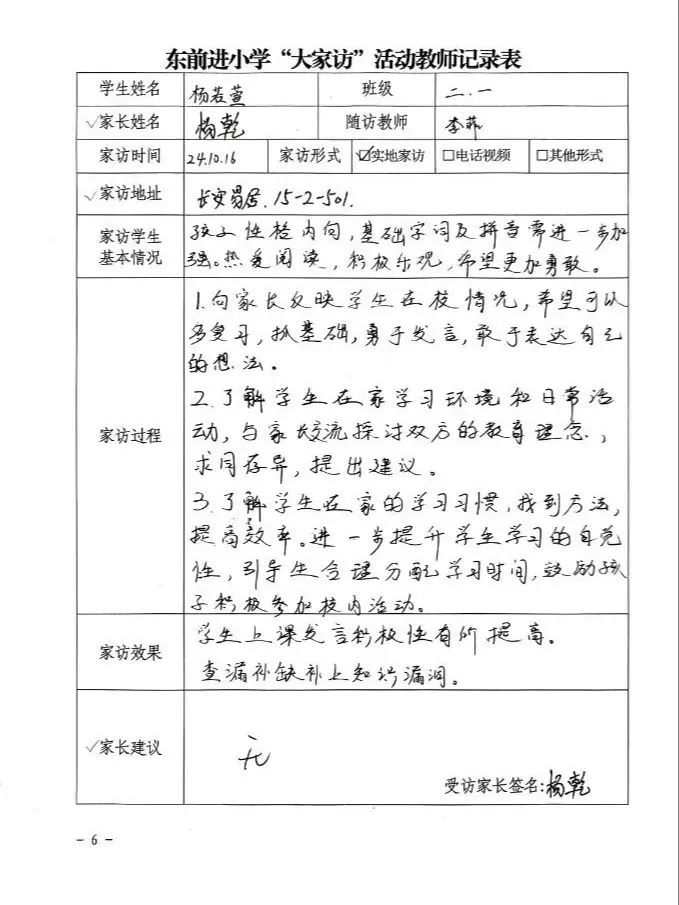 东前进小学“大家访”活动教师记录表
学生姓名 杨若萱 班级 二.一
✓家长姓名 杨乾 随访教师 李菲
家访时间 24.10.16 家访形式 ☑实地家访 □电话视频 □其他形式
✓家访地址 长安易居.15-2-501.
家访学生
基本情况
孩子性格内向,基础字词及拼音需进一步加
强。热爱阅读,积极乐观,希望更加勇敢。
家访过程
1.向家长反映学生在校情况,希望可以
多复习,抓基础,勇于发言,敢于表达自己
的想法。
2.了解学生在家学习环境和日常活
动,与家长交流探讨双方的教育理念,
求同存异,提出建议。
3.了解学生在家的学习习惯,找到方法,
提高效率。进一步提升学生学习的自觉
性,引导生合理分配学习时间,鼓励孩
子积极参加校内活动。
家访效果
学生上课发言积极性有所提高。
查漏补缺补上知识漏洞。
✓家长建议
无
受访家长签名:杨乾
- 6 -